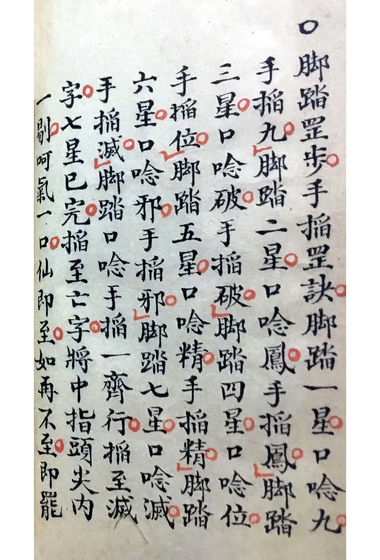 ○脚踏罡步手搯罡訣脚踏一星口唸九
手搯九脚踏二星口唸鳳手搯鳳脚踏
三星口唸破手搯破脚踏四星口唸位
手搯位脚踏五星口唸精手搯精脚踏
六星口唸邪手搯邪脚踏七星口唸滅
手搯滅脚踏口唸手搯一齊行搯至滅
字七星已完搯至亡字將中指頭尖内
一剔呵氣一口仙即至如再不至即罷